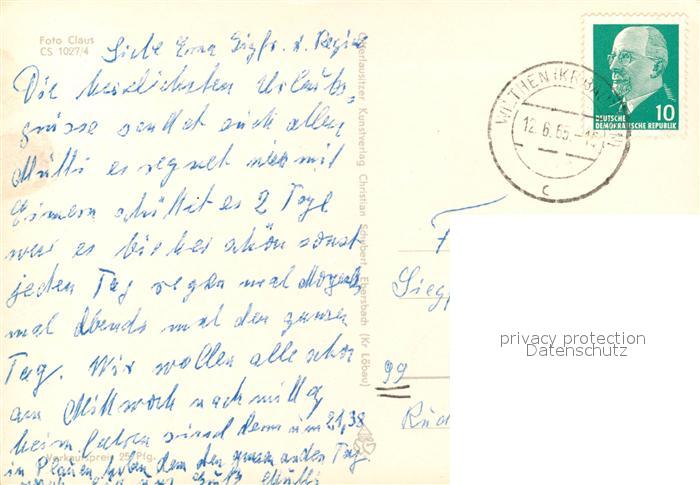 Foto Claus
CS 1027/4
Liebe Erna Sigfr. u. Regina
Die herzlichsten Urlaubs
grüsse sendet euch allen
Mutti es regnet mit
Eimern schüttet es 2 Tage
war es bisher schön sonst
jeden Tag regen mal Morgens
mal Abends mal den ganzen
Tag. Wir wollen alle schon
am Mittwoch nachmittag
heim fahren sind dann um 21,38
in Plauen haben dann den ganzen Tag.
Verkaufspreis 25 Pfg.
Mutti
Oberlausitzer Kunstverlag Christian Schubert, Ebersbach (Kr. Löbau)
WILTHEN (KR. BAUTZEN)
12.6.65.-16
c
10
DEUTSCHE
DEMOKRATISCHE REPUBLIK
F
Siegf
99
Rud
privacy protection
Datenschutz